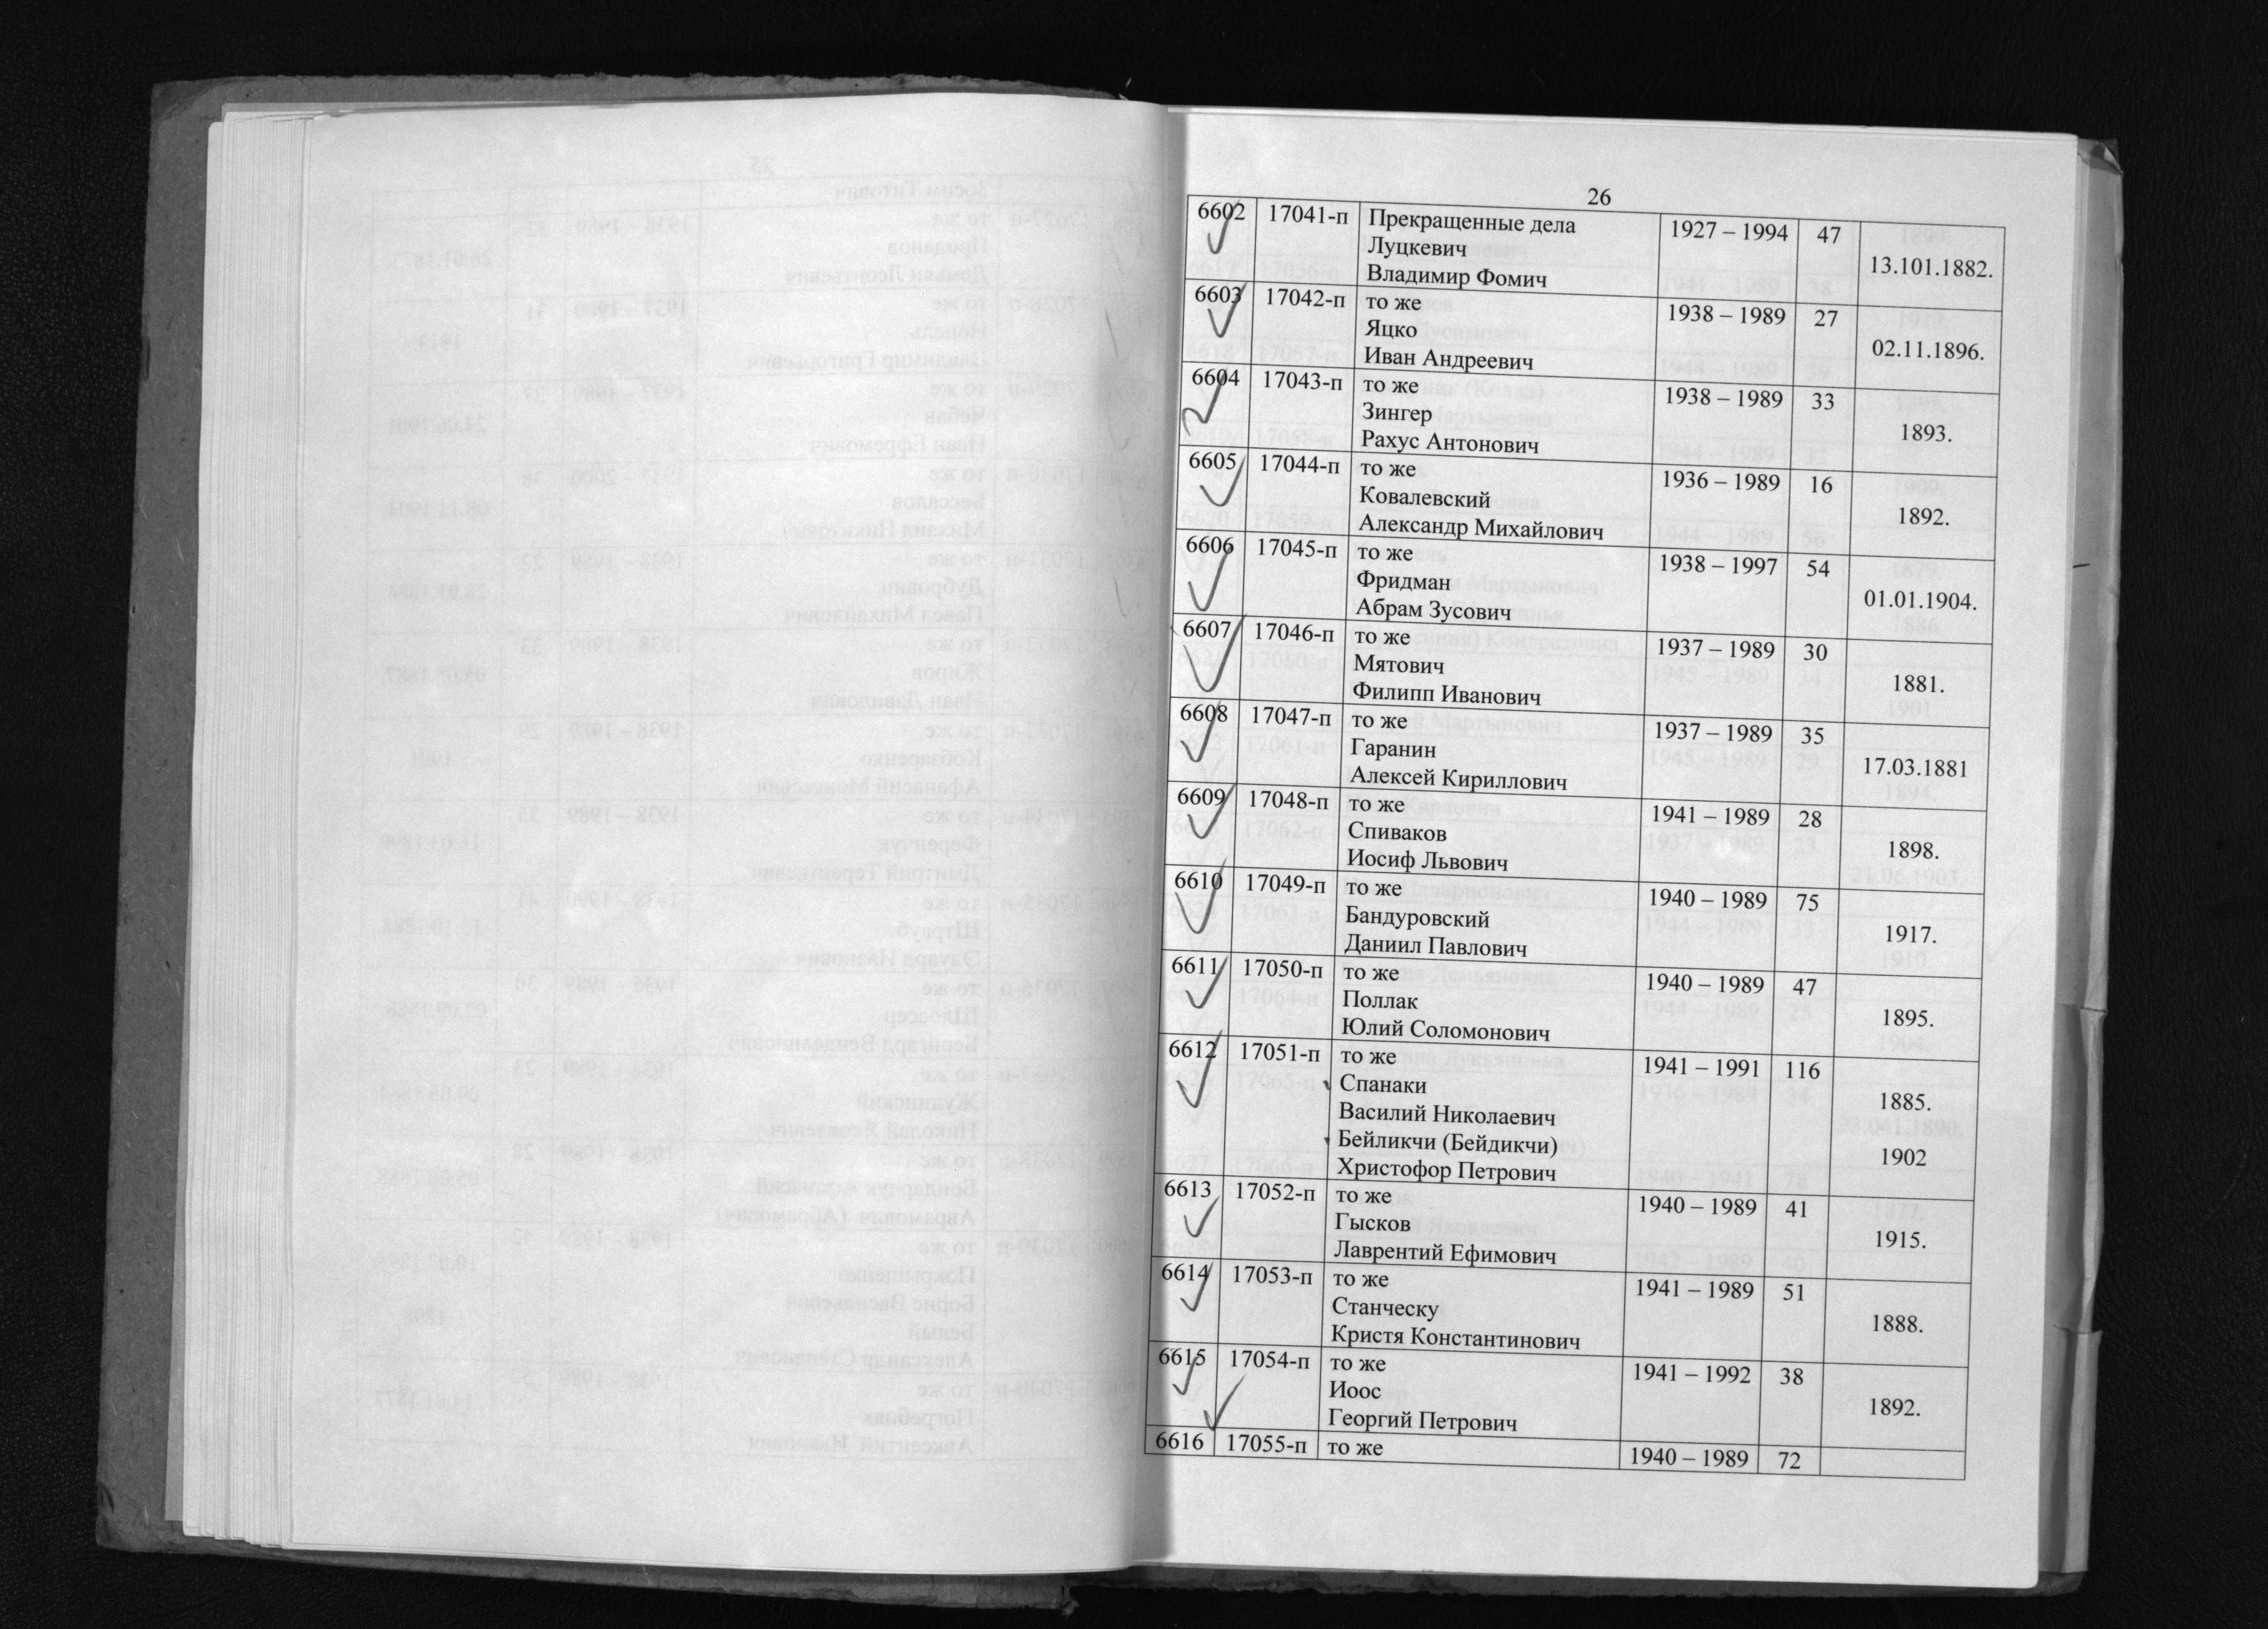 26
6602 17041-п Прекращенные дела 1927 – 1994 47
Луцкевич
Владимир Фомич 13.101.1882.
6603 17042-п то же 1938 – 1989 27
Яцко
Иван Андреевич 02.11.1896.
6604 17043-п то же 1938 – 1989 33
Зингер
Рахус Антонович 1893.
6605 17044-п то же 1936 – 1989 16
Ковалевский
Александр Михайлович 1892.
6606 17045-п то же 1938 – 1997 54
Фридман
Абрам Зусович 01.01.1904.
6607 17046-п то же 1937 – 1989 30
Мятович
Филипп Иванович 1881.
6608 17047-п то же 1937 – 1989 35
Гаранин
Алексей Кириллович 17.03.1881
6609 17048-п то же 1941 – 1989 28
Спиваков
Иосиф Львович 1898.
6610 17049-п то же 1940 – 1989 75
Бандуровский
Даниил Павлович 1917.
6611 17050-п то же 1940 – 1989 47
Поллак
Юлий Соломонович 1895.
6612 17051-п то же 1941 – 1991 116
Спанаки 1885.
Василий Николаевич
Бейликчи (Бейдикчи) 1902
Христофор Петрович
6613 17052-п то же 1940 – 1989 41
Гысков
Лаврентий Ефимович 1915.
6614 17053-п то же 1941 – 1989 51
Станческу
Кристя Константинович 1888.
6615 17054-п то же 1941 – 1992 38
Иоос
Георгий Петрович 1892.
6616 17055-п то же 1940 – 1989 72